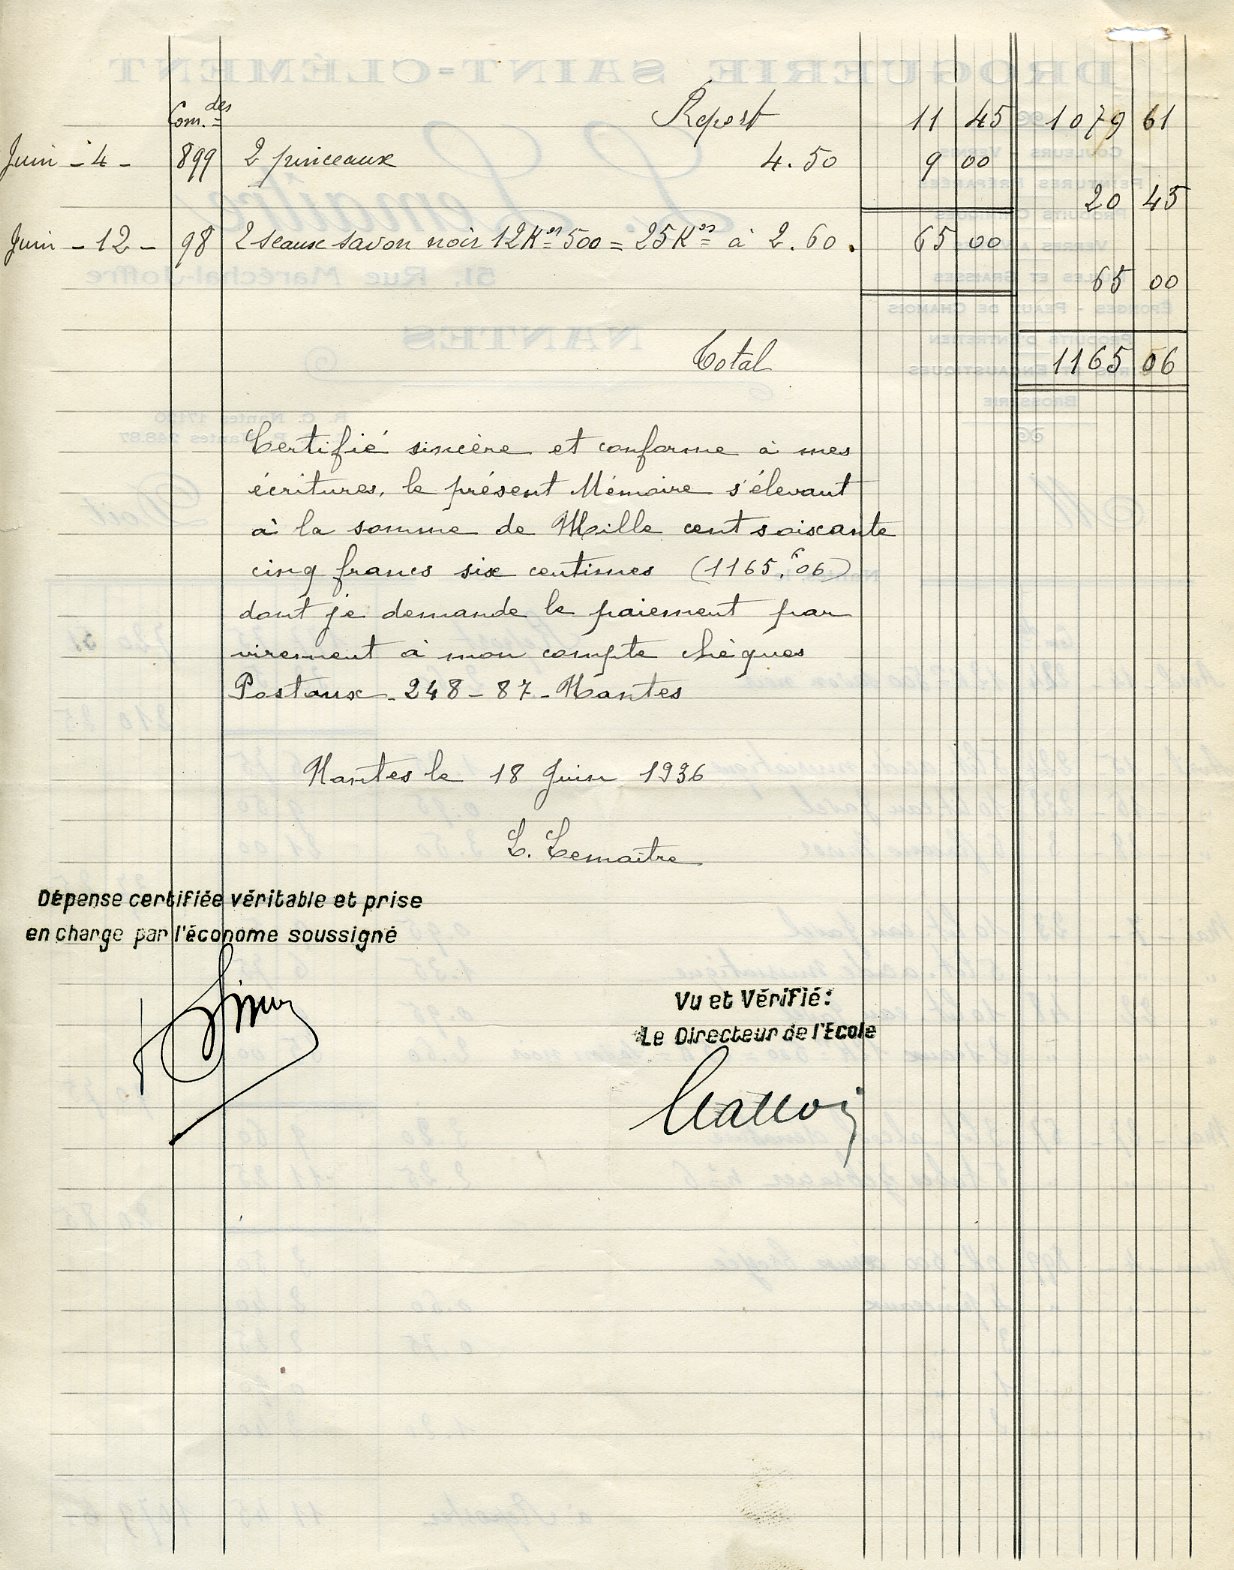 Com.des Report 11 45 1079 61
Juin - 4 - 899 2 pinceaux 4.50 9 00
20 45
Juin - 12 - 98 2 seaux savon noir 12K os 500 = 25K os à 2.60. 65 00
65 00
Total 1165 06
Certifié sincère et conforme à mes
écritures, le présent Mémoire s'élevant
à la somme de Mille cent soixante
cinq francs six centimes (1165,f06)
dont je demande le paiement par
virement à mon compte chèques
Postaux - 248 - 87 - Nantes
Nantes le 18 Juin 1936
L. Lemaître
Dépense certifiée véritable et prise
en charge par l'économe soussigné
Vu et Vérifié:
Le Directeur de l'Ecole